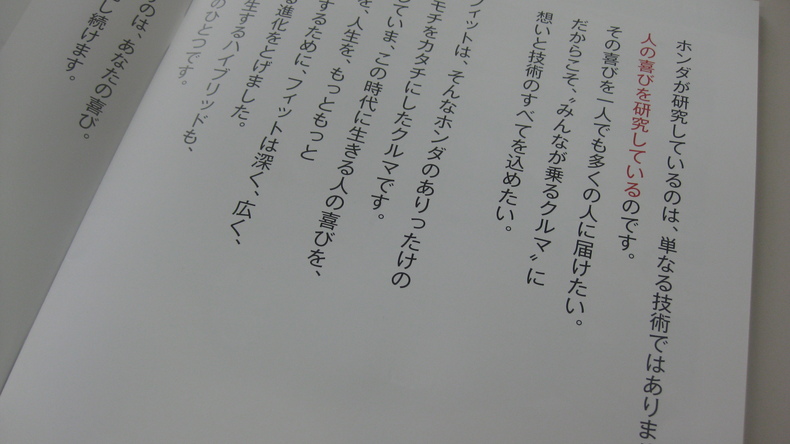 ホンダが研究しているのは、単なる技術ではありま
人の喜びを研究しているのです。
その喜びを一人でも多くの人に届けたい。
だからこそ、〝みんなが乗るクルマ〟に
想いと技術のすべてを込めたい。
フィットは、そんなホンダのありったけの
モチをカタチにしたクルマです。
ていま、この時代に生きる人の喜びを、
を、人生を、もっともっと
するために、フィットは深く、広く、
る進化をとげました。
生するハイブリッドも、
のひとつです。
のは、あなたの喜び。
し続けます。